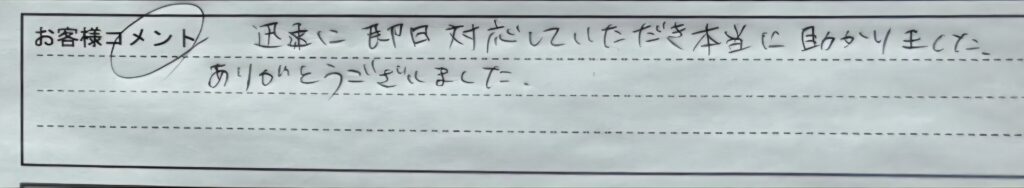 お客様コメント 迅速に即日対応していただき本当に助かりました。
ありがとうございました。